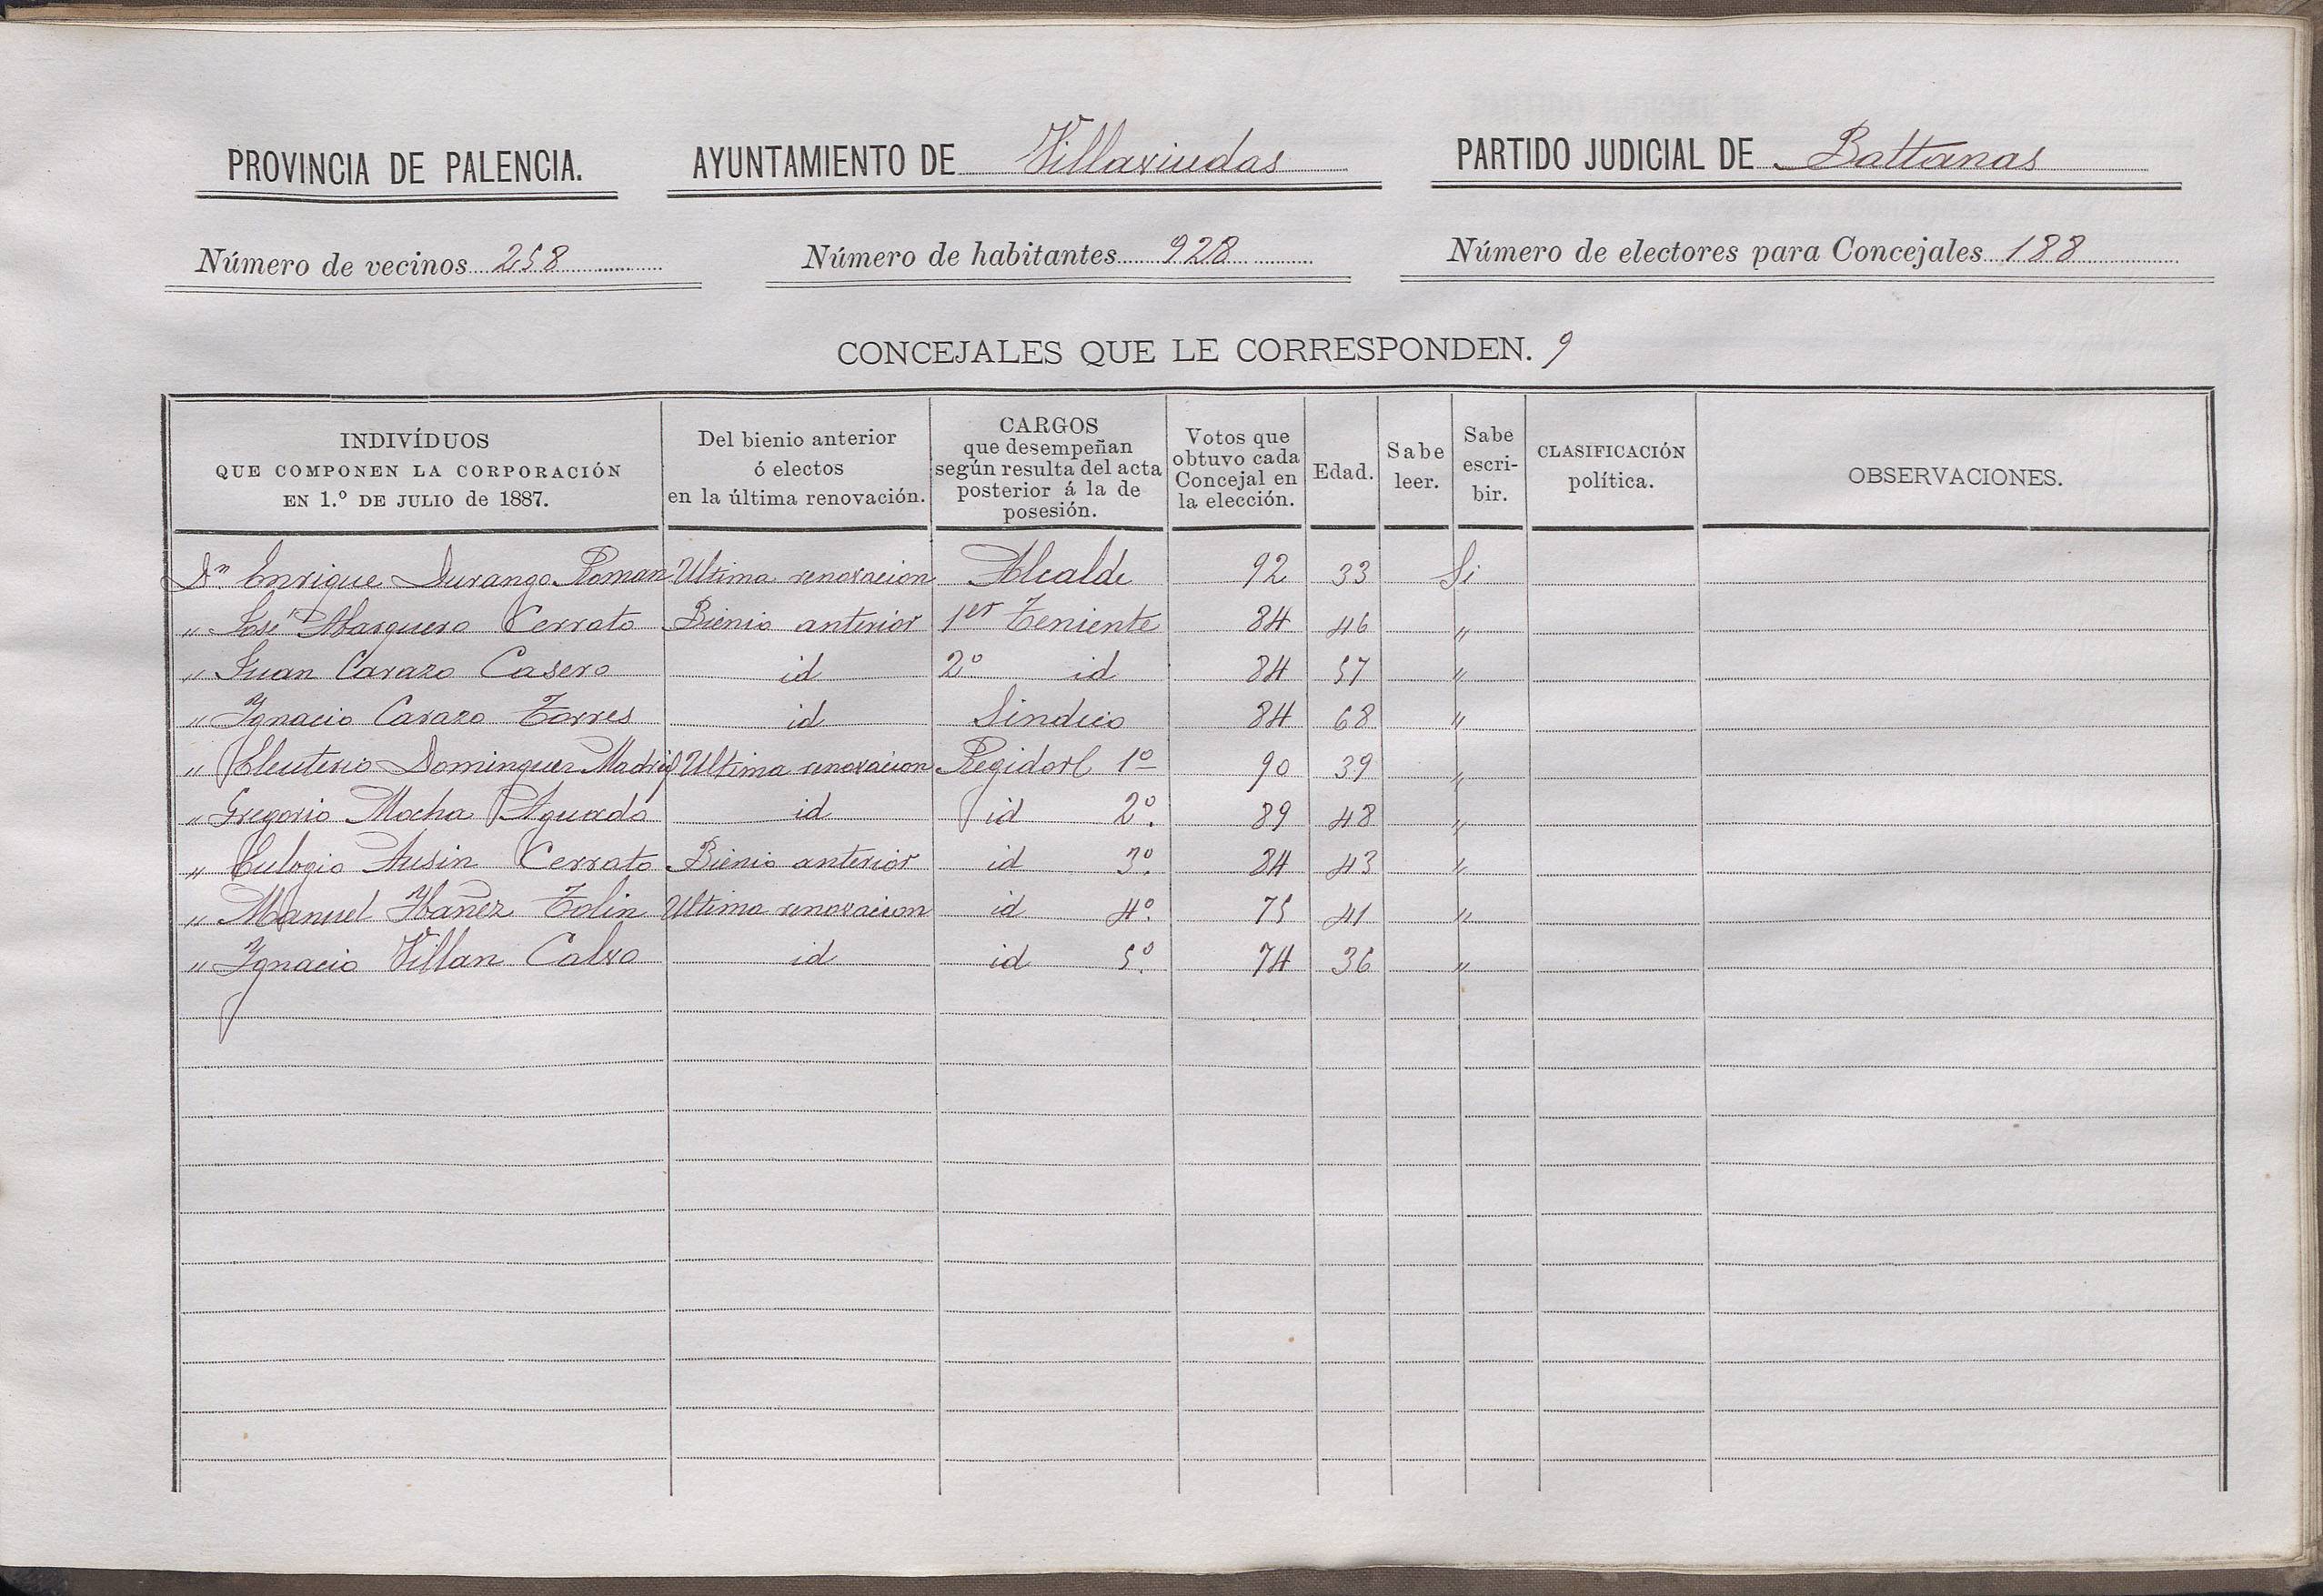 PROVINCIA DE PALENCIA. AYUNTAMIENTO DE Villaviudas PARTIDO JUDICIAL DE Baltanas
Número de vecinos 258 Número de habitantes 928 Número de electores para Concejales 188
CONCEJALES QUE LE CORRESPONDEN. 9
INDIVÍDUOS
QUE COMPONEN LA CORPORACIÓN
EN 1.º DE JULIO de 1887.
Del bienio anterior
ó electos
en la última renovación.
CARGOS
que desempeñan
según resulta del acta
posterior á la de
posesión.
Votos que
obtuvo cada
Concejal en
la elección.
Edad.
Sabe
leer.
Sabe
escri-
bir.
CLASIFICACIÓN
política.
OBSERVACIONES.
Dn Enrique Durango Roman Ultima renovacion Alcalde 92 33 Si
" José Marquero Cerrato Bienio anterior 1er Teniente 84 46 "
" Juan Carazo Casero id 2º id 84 57 "
" Ygnacio Carazo Torres id Sindico 84 68 "
" Eleuterio Dominguez Madrid Ultima renovacion Regidor 1º 90 39 "
" Gregorio Mocha Aguado id id 2º. 89 48 "
" Eulogio Ausin Cerrato Bienio anterior id 3º. 84 43 "
" Manuel Ybañez Tolin Ultima renovacion id 4º. 75 41 "
" Ygnacio Villan Calvo id id 5º. 74 36 "